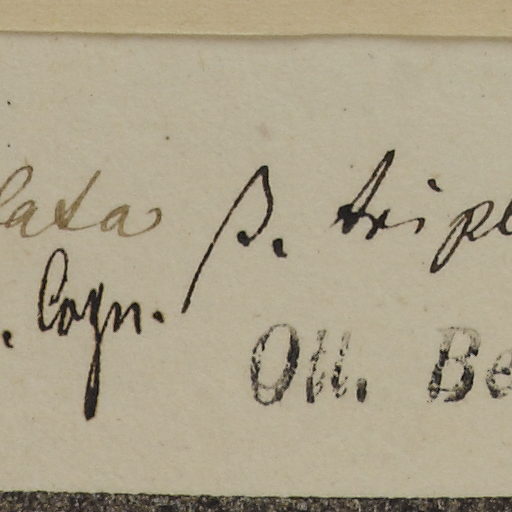 lata β. tripl
. Cogn.
Ott. Be